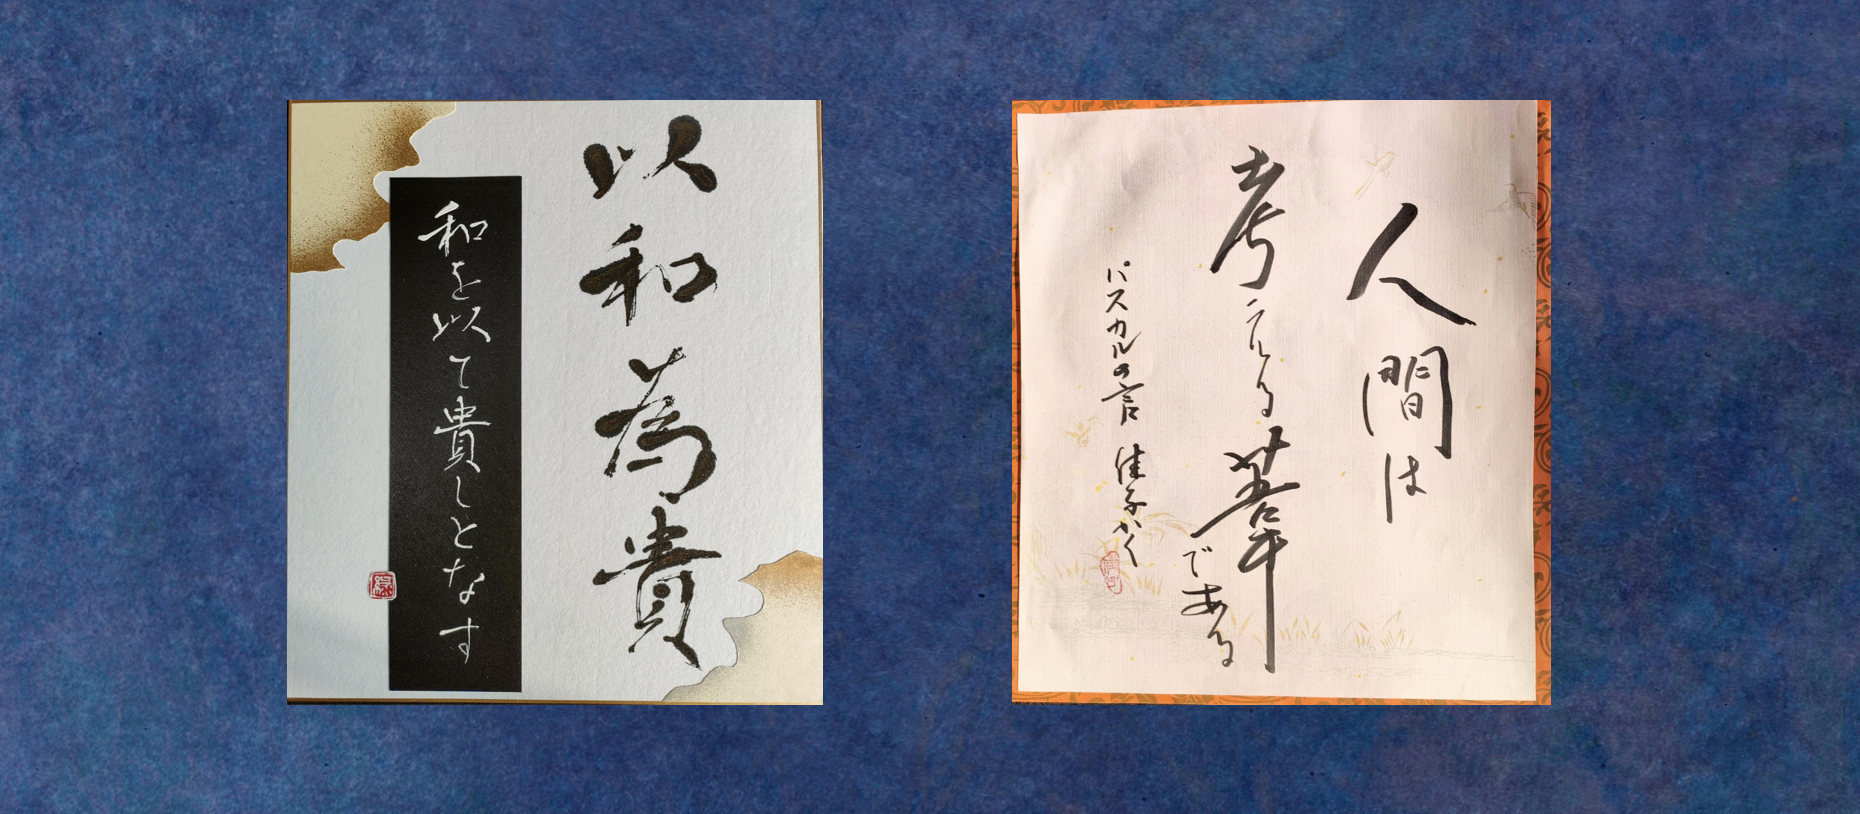 以和為貴
和を以て貴しとなす
人間は
考える葦
である
パスカルの言 佳子かく